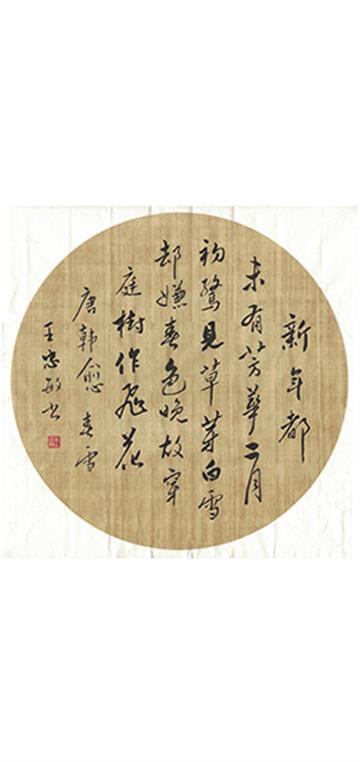 新年都
未有芳華二月
初驚見草芽白雪
却嫌春色晚故穿
庭樹作飛花
唐韓愈春雪
王忠敏书